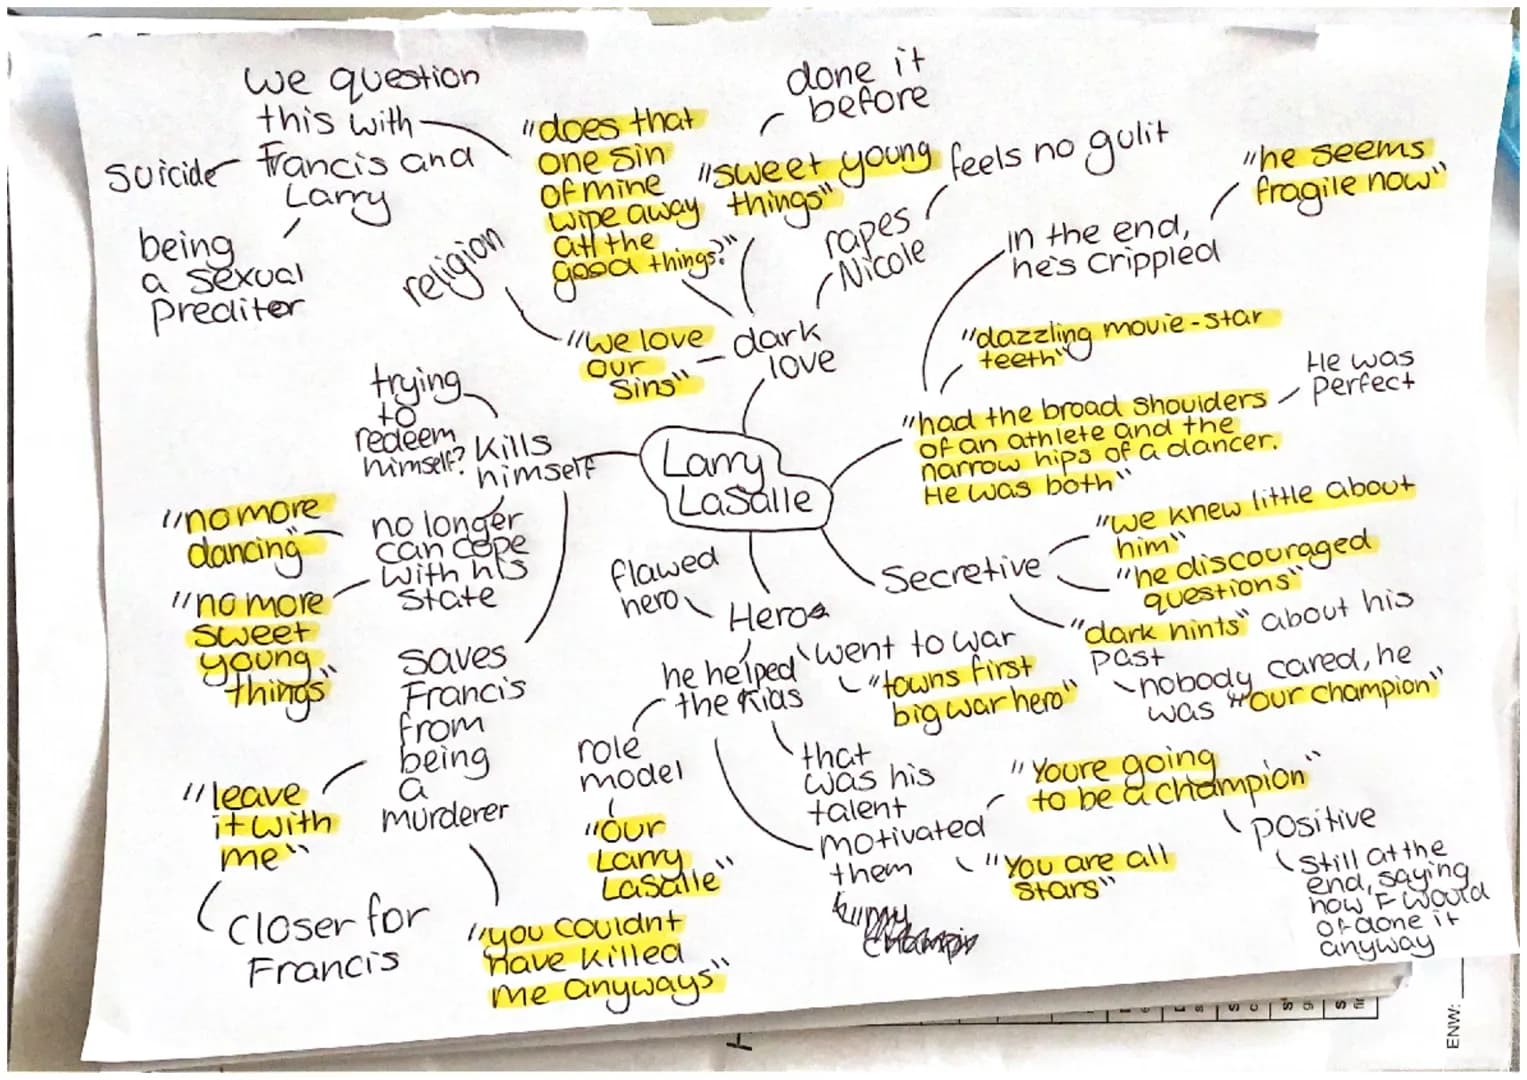 we question
this with
Francis and
Larry
suicide
being
a sexual
Prediter
"does that
one sin
of mine
wipe away
all the
good things?"
done it
before
"sweet young
things"
feels no gulit
rapes
Nicole
"he seems
fragile now"
in the end,
he's crippled
religion
"we love
our
Sins"
dark
love
"dazzling movie-star
teeth"
He was
perfect
"had the broad shoulders
of an athlete and the
narrow hips of a dancer.
He was both"
trying
to
redeem
himself?
kills
himself
Larry
LaSalle
"no more
dancing"
no longer
can cope
with his
state
"no more
sweet
young
things"
flawed
hero
Hero
Secretive
"we knew little about
him"
"he discouraged
questions"
"dark hints" about his
past
nobody cared, he
was "our champion"
saves
Francis
from
being
a
murderer
he helped
the kids
went to war
"towns first
big war hero"
"leave
it with
me"
closer for
Francis
role
model
"our
Larry
LaSalle"
that
was his
talent
motivated
them
"Youre going
to be a champion"
"You are all
stars"
positive
still at the
end, saying
how F would
of done it
anyway
"you couldnt
have killed
me anyways"
ENW: